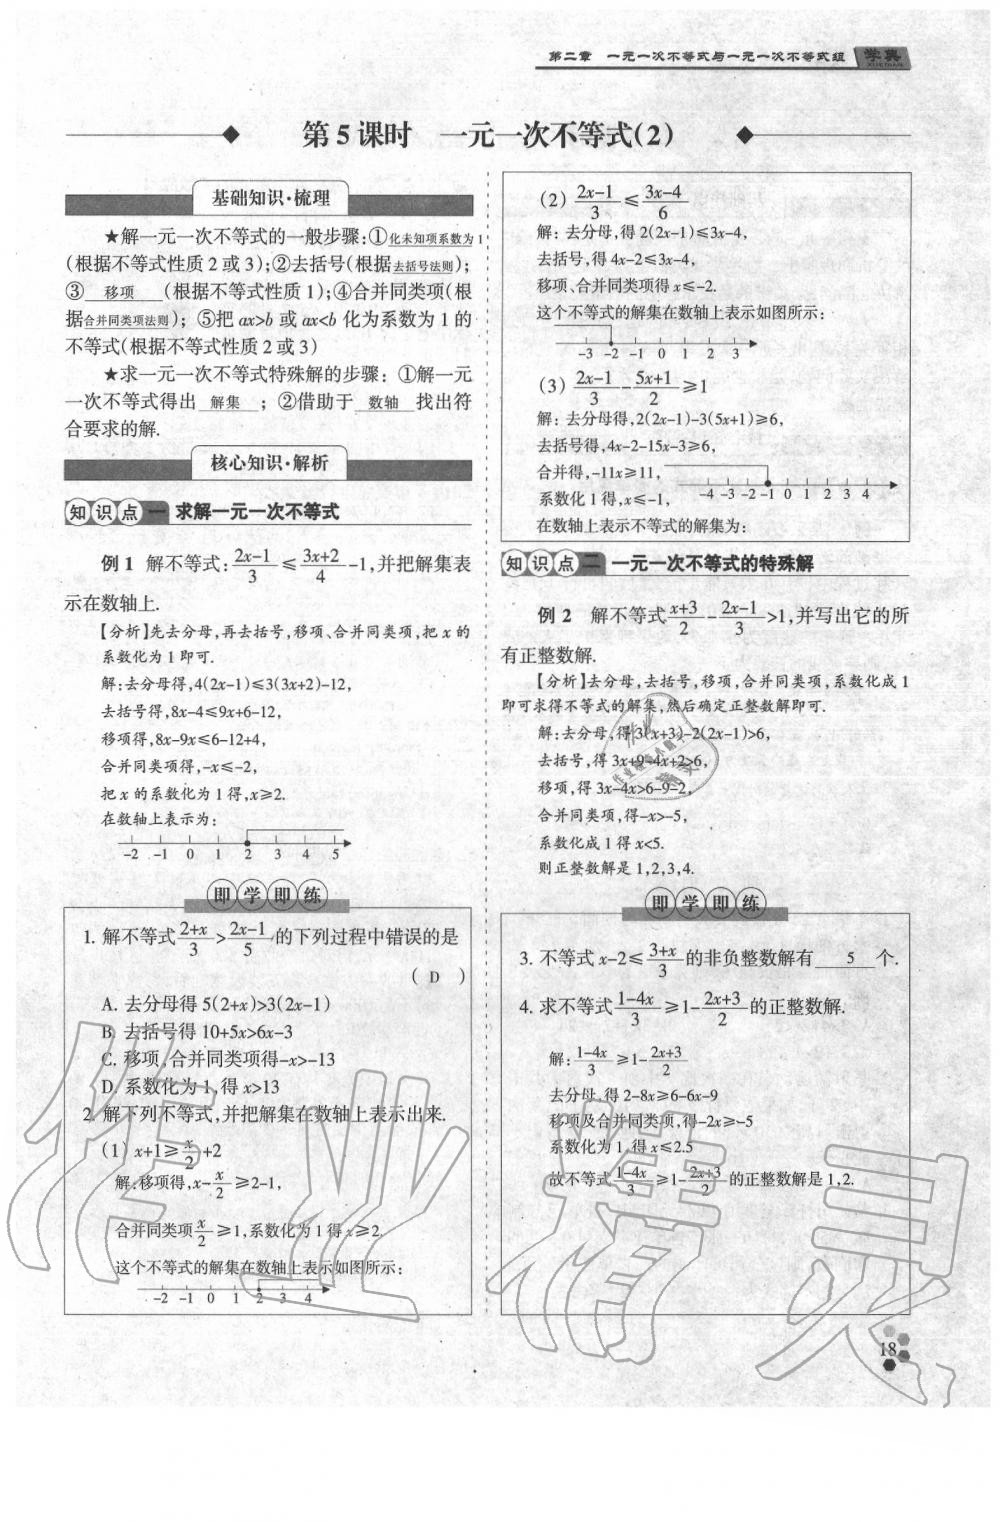 第二章 一元一次不等式与一元一次不等式组 学典
XUEDIAN
第5课时 一元一次不等式(2)
基础知识·梳理
★解一元一次不等式的一般步骤:①化未知项系数为1
(根据不等式性质2或3);②去括号(根据去括号法则);
③ 移项 (根据不等式性质1);④合并同类项(根
据合并同类项法则);⑤把ax>b或ax<b化为系数为1的
不等式(根据不等式性质2或3)
★求一元一次不等式特殊解的步骤:①解一元
一次不等式得出 解集 ;②借助于 数轴 找出符
合要求的解.
核心知识·解析
知识点一 求解一元一次不等式
例1 解不等式:(2x-1)/3≤(3x+2)/4-1,并把解集表
示在数轴上.
【分析】先去分母,再去括号,移项、合并同类项,把x的
系数化为1即可.
解:去分母得,4(2x-1)≤3(3x+2)-12,
去括号得,8x-4≤9x+6-12,
移项得,8x-9x≤6-12+4,
合并同类项得,-x≤-2,
把x的系数化为1得,x≥2.
在数轴上表示为:
-2 -1 0 1 2 3 4 5
即学即练
1. 解不等式(2+x)/3>(2x-1)/5的下列过程中错误的是
( D )
A. 去分母得5(2+x)>3(2x-1)
B. 去括号得10+5x>6x-3
C. 移项,合并同类项得-x>-13
D. 系数化为1,得x>13
2. 解下列不等式,并把解集在数轴上表示出来.
(1) x+1≥x/2+2
解:移项得,x-x/2≥2-1,
合并同类项x/2≥1,系数化为1得x≥2.
这个不等式的解集在数轴上表示如图所示:
-2 -1 0 1 2 3 4
(2) (2x-1)/3≤(3x-4)/6
解:去分母,得2(2x-1)≤3x-4,
去括号,得4x-2≤3x-4,
移项、合并同类项得x≤-2.
这个不等式的解集在数轴上表示如图所示:
-3 -2 -1 0 1 2 3
(3) (2x-1)/3-(5x+1)/2≥1
解:去分母得,2(2x-1)-3(5x+1)≥6,
去括号得,4x-2-15x-3≥6,
合并得,-11x≥11,
系数化1得,x≤-1,
-4 -3 -2 -1 0 1 2 3 4
在数轴上表示不等式的解集为:
知识点二 一元一次不等式的特殊解
例2 解不等式(x+3)/2-(2x-1)/3>1,并写出它的所
有正整数解.
【分析】去分母,去括号,移项,合并同类项,系数化成1
即可求得不等式的解集,然后确定正整数解即可.
解:去分母,得3(x+3)-2(2x-1)>6,
去括号,得3x+9-4x+2>6,
移项,得3x-4x>6-9-2,
合并同类项,得-x>-5,
系数化成1得x<5.
则正整数解是1,2,3,4.
即学即练
3. 不等式x-2≤(3+x)/3的非负整数解有 5 个.
4. 求不等式(1-4x)/3≥1-(2x+3)/2的正整数解.
解:(1-4x)/3≥1-(2x+3)/2
去分母,得2-8x≥6-6x-9
移项及合并同类项,得-2x≥-5
系数化为1,得x≤2.5
故不等式(1-4x)/3≥1-(2x+3)/2的正整数解是1,2.
18
作业精灵